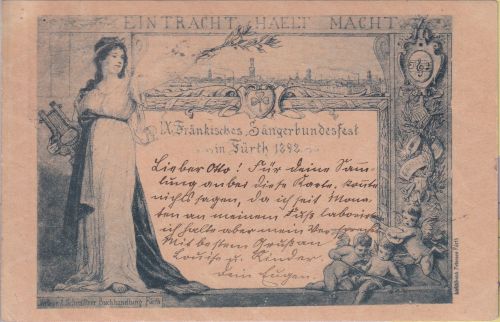 EINTRACHT HAELT MACHT
IX. Fränkisches Sängerbundesfest
in Fürth 1892
Lieber Otto! Für deine Samm-
lung anbei diese Karte. konnte
nichts sagen, da ich seit Mona-
ten an meinem Fuß laboriere
ich halte aber mein Versprechen
Mit bestem Gruß an
Louise u. Kinder.
dein Eugen.
Schmittner Buchhandlung Fürth